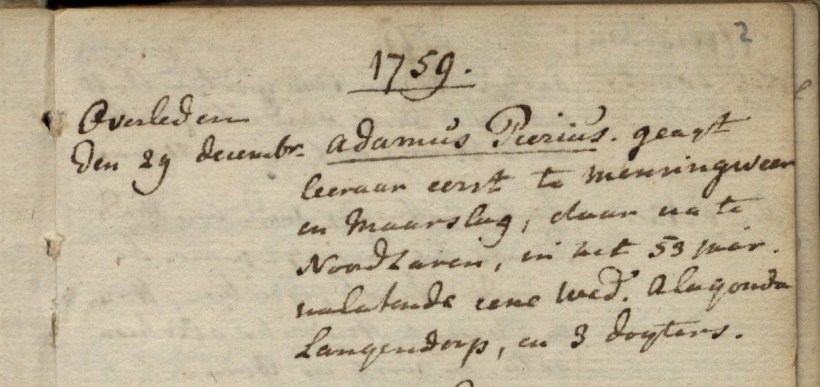 2
1759.
Overleden
den 29 decembr. Adamus Pierius. geagt
leeraar eerst te Mensingweer
en Maarslag, daar na te
Noordlaren, in het 53 jaar.
nalatende eene Wed.e Alagonda
Langendorp, en 3 dogters.